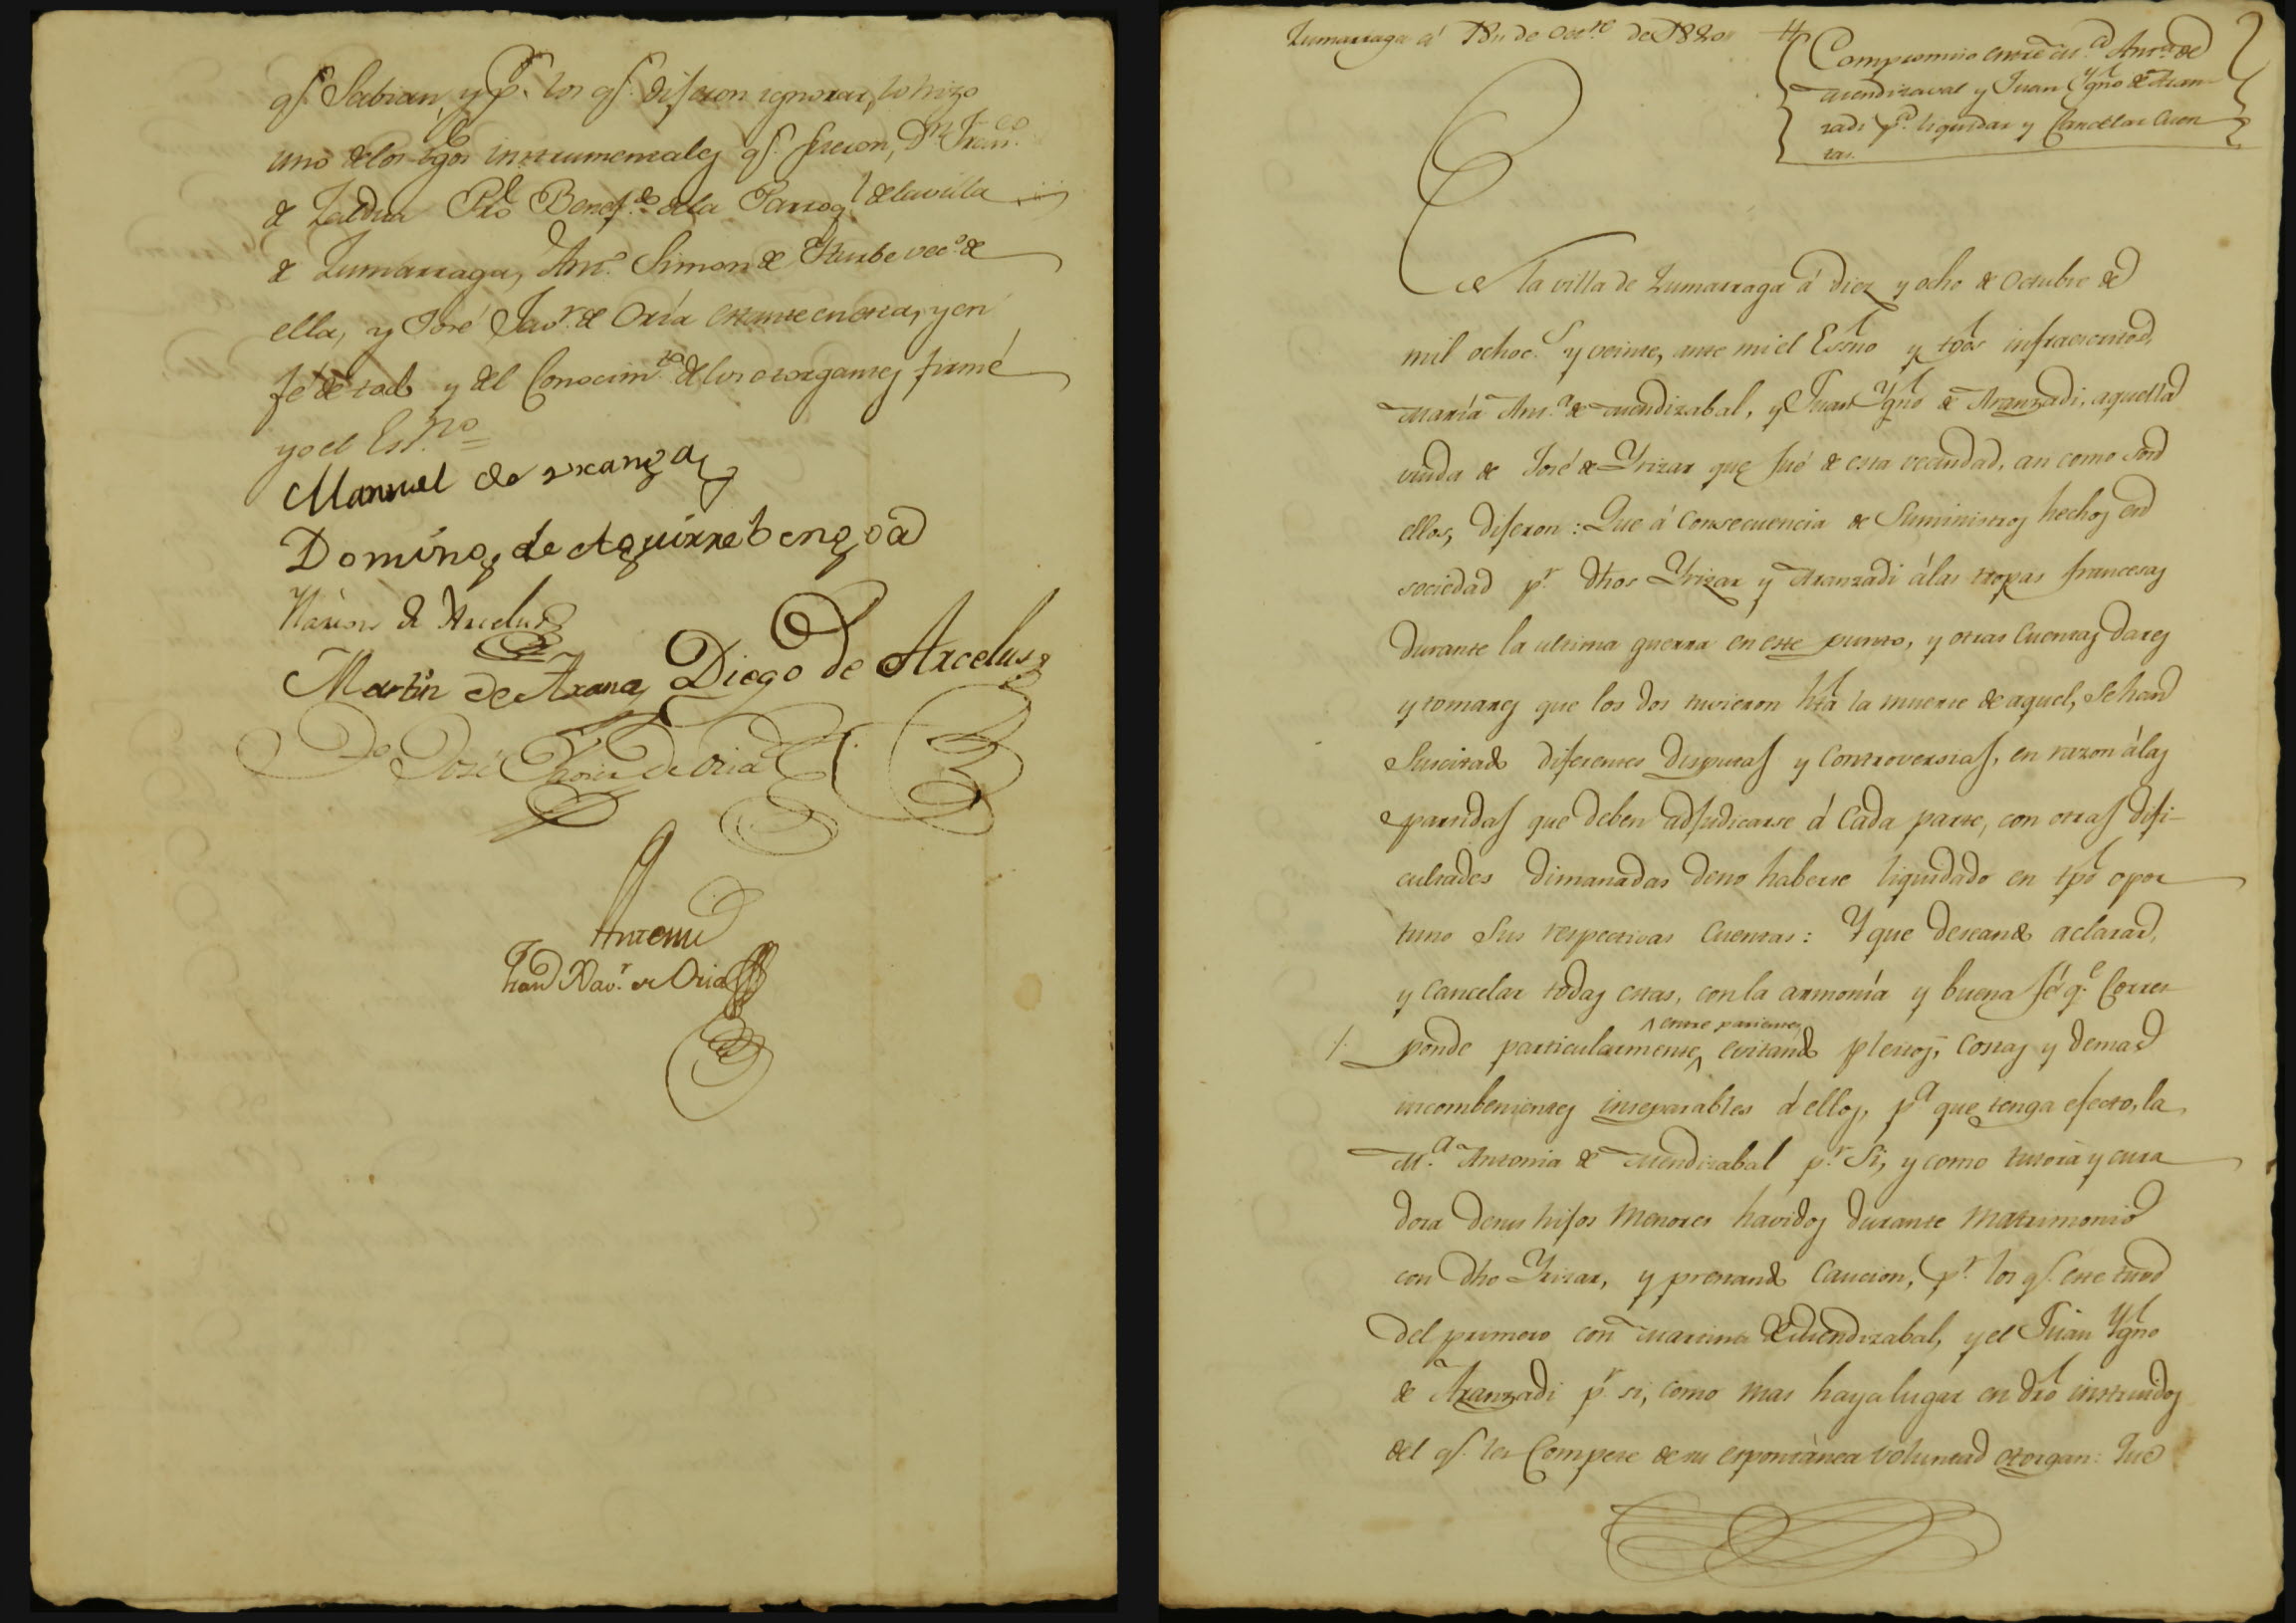 qe. Sabian, y pr. los qe. dijeron ignorar, lo hizo
uno de los tgos instrumentales qe. fueron, Dn. Franco.
de Zaldua Pro Benefdo. de la Parroql. de la villa
de Zumarraga, Anto. Simon de Yturbe veco. de
ella, y José Javr. de Oria estante en esta, y en
fé de todo y del Conocimto. de los otorgantes firmé
yo el Essno. =
Manuel de Aranga
Domingo de Aguirrebengoa
de Arcelus
Martin de Arana Diego de Arcelus
José Javier de Oria
Antemi
Xavr. de Oria
Zumarraga á 18,, de Octre. de 1820
Compromiso entre Ma. Anta. de
Mendizaval y Juan Ygno de Aran-
zadi pa. liquidar y Cancelar Cuen
tas.
En la villa de Zumarraga á diez y ocho de Octubre de
mil ochocs. y veinte, ante mi el Essno y tgos infraescritos,
Maria Anta. de Mendizabal, y Juan Ygno de Aranzadi, aquella
viuda de José de Yrizar que fué de esta vecindad, asi como son
ellos, dijeron: Que á consecuencia de Suministros hechos en
sociedad pr. dhos Yrizar y Aranzadi á las tropas francesas
durante la ultima guerra en este punto, y otras Cuentas dares
y tomares que los dos tuvieron hta la muerte de aquel, se han
Suscitado diferentes disputas y Controversias, en razon á las
partidas que deben adjudicarse á Cada parte, con otras difi-
cultades dimanadas de no haberse liquidado en tpo opor
tuno Sus respectivas Cuentas: Y que deseando aclarar,
y cancelar todas estas, con la armonía y buena fé qe. Corres
ponde particularmente ^ entre parientes, evitando pleitos, costas y demas
incombenientes inseparables á ellos, pa que tenga efecto, la
Ma. Antonia de Mendizabal pr. Si, y como tutora y cura
dora de sus hijos menores havidos durante matrimonio
con dho Yrizar, y prestando Caucion, pr. los qe. este tuvo
del primero con Martina de Mendizabal, y el Juan Ygno
de Aranzadi pr si, como mas haya lugar en dro instruidos
del qe. les Compete de su espontánea voluntad otorgan: Que